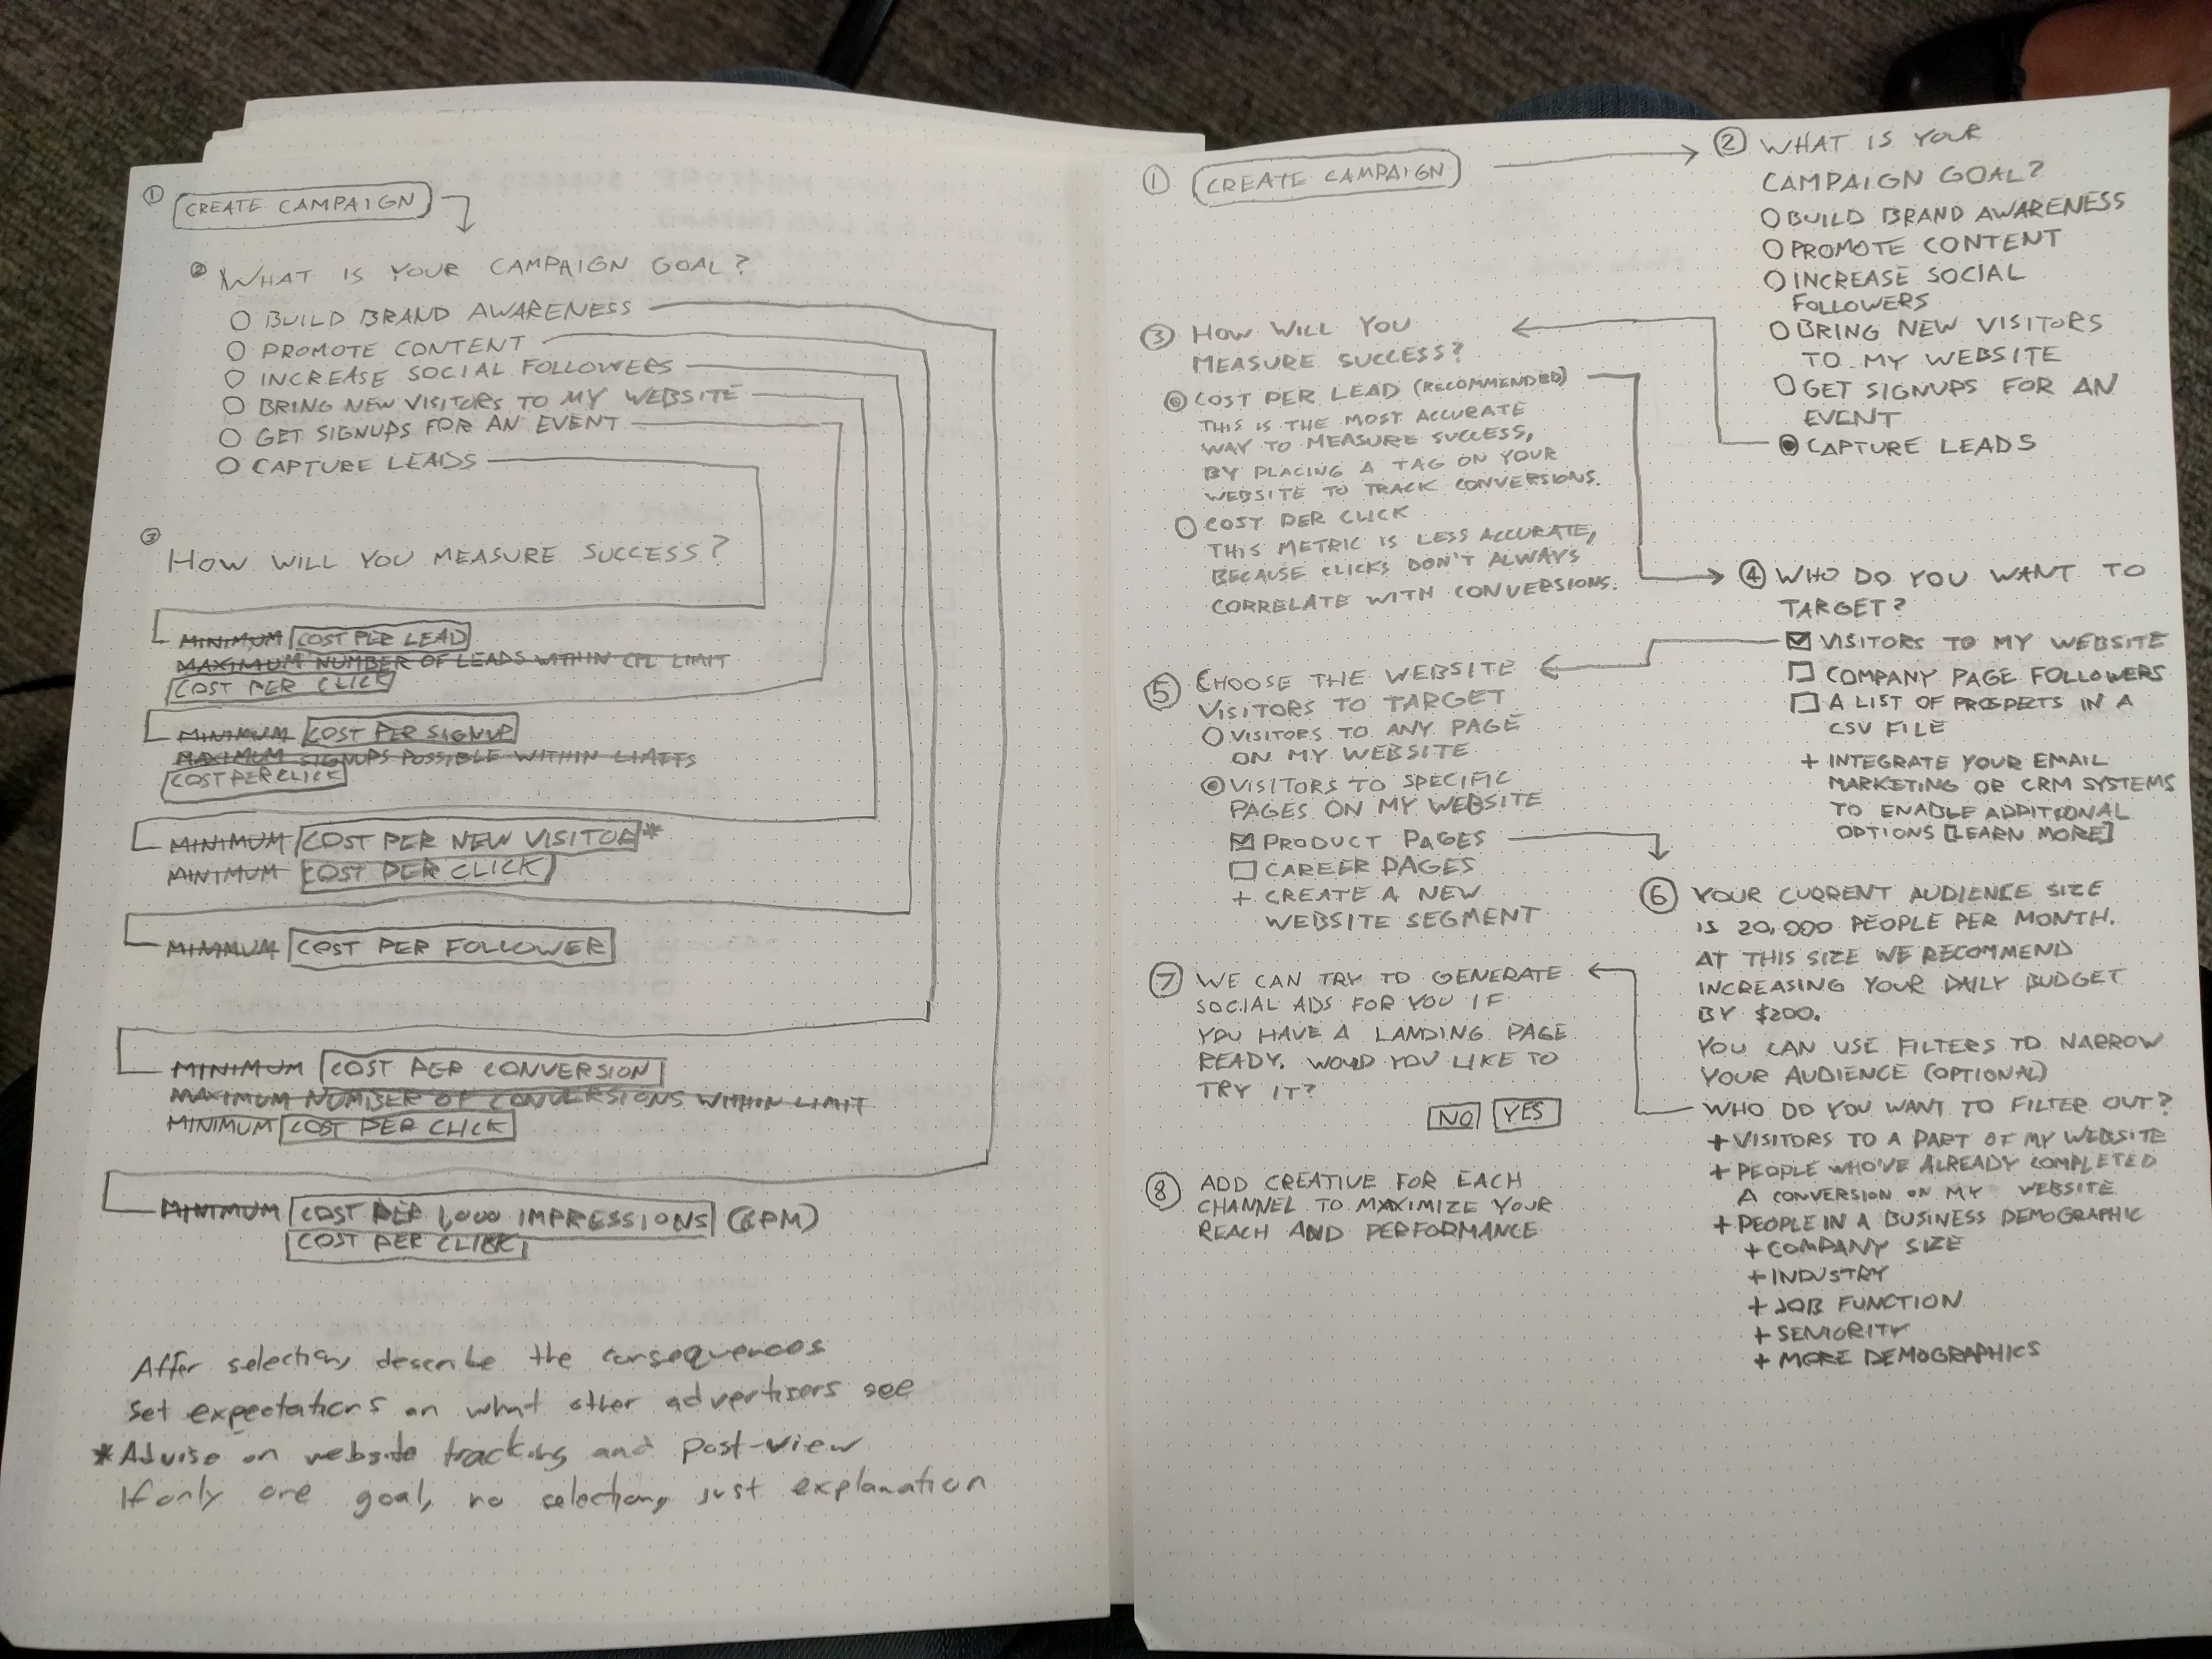 1 CREATE CAMPAIGN
2 WHAT IS YOUR CAMPAIGN GOAL?
BUILD BRAND AWARENESS
PROMOTE CONTENT
INCREASE SOCIAL FOLLOWERS
BRING NEW VISITORS TO MY WEBSITE
GET SIGNUPS FOR AN EVENT
CAPTURE LEADS
3
HOW WILL YOU MEASURE SUCCESS?
MINIMUM COST PER LEAD
MAXIMUM NUMBER OF LEADS WITHIN CPL LIMIT
COST PER CLICK
MINIMUM COST PER SIGNUP
MAXIMUM SIGNUPS POSSIBLE WITHIN LIMITS
COST PER CLICK
MINIMUM COST PER NEW VISITOR*
MINIMUM COST PER CLICK
MINIMUM COST PER FOLLOWER
MINIMUM COST PER CONVERSION
MAXIMUM NUMBER OF CONVERSIONS WITHIN LIMIT
MINIMUM COST PER CLICK
MINIMUM COST PER 1,000 IMPRESSIONS (CPM)
COST PER CLICK
After selection, describe the consequences
Set expectations on what other advertisers see
*Advise on website tracking and post-view
If only one goal, no selection, just explanation
1 CREATE CAMPAIGN
2 WHAT IS YOUR
CAMPAIGN GOAL?
BUILD BRAND AWARENESS
PROMOTE CONTENT
INCREASE SOCIAL
FOLLOWERS
BRING NEW VISITORS
TO MY WEBSITE
GET SIGNUPS FOR AN
EVENT
CAPTURE LEADS
3 HOW WILL YOU
MEASURE SUCCESS?
COST PER LEAD (RECOMMENDED)
THIS IS THE MOST ACCURATE
WAY TO MEASURE SUCCESS,
BY PLACING A TAG ON YOUR
WEBSITE TO TRACK CONVERSIONS.
COST PER CLICK
THIS METRIC IS LESS ACCURATE,
BECAUSE CLICKS DON'T ALWAYS
CORRELATE WITH CONVERSIONS.
4 WHO DO YOU WANT TO
TARGET?
VISITORS TO MY WEBSITE
COMPANY PAGE FOLLOWERS
A LIST OF PROSPECTS IN A
CSV FILE
+ INTEGRATE YOUR EMAIL
MARKETING OR CRM SYSTEMS
TO ENABLE ADDITIONAL
OPTIONS [LEARN MORE]
5 CHOOSE THE WEBSITE
VISITORS TO TARGET
VISITORS TO ANY PAGE
ON MY WEBSITE
VISITORS TO SPECIFIC
PAGES ON MY WEBSITE
PRODUCT PAGES
CAREER PAGES
+ CREATE A NEW
WEBSITE SEGMENT
6 YOUR CURRENT AUDIENCE SIZE
IS 20,000 PEOPLE PER MONTH.
AT THIS SIZE WE RECOMMEND
INCREASING YOUR DAILY BUDGET
BY $200.
YOU CAN USE FILTERS TO NARROW
YOUR AUDIENCE (OPTIONAL)
WHO DO YOU WANT TO FILTER OUT?
+ VISITORS TO A PART OF MY WEBSITE
+ PEOPLE WHO'VE ALREADY COMPLETED
A CONVERSION ON MY WEBSITE
+ PEOPLE IN A BUSINESS DEMOGRAPHIC
+ COMPANY SIZE
+ INDUSTRY
+ JOB FUNCTION
+ SENIORITY
+ MORE DEMOGRAPHICS
7 WE CAN TRY TO GENERATE
SOCIAL ADS FOR YOU IF
YOU HAVE A LANDING PAGE
READY. WOULD YOU LIKE TO
TRY IT?
NO YES
8 ADD CREATIVE FOR EACH
CHANNEL TO MAXIMIZE YOUR
REACH AND PERFORMANCE